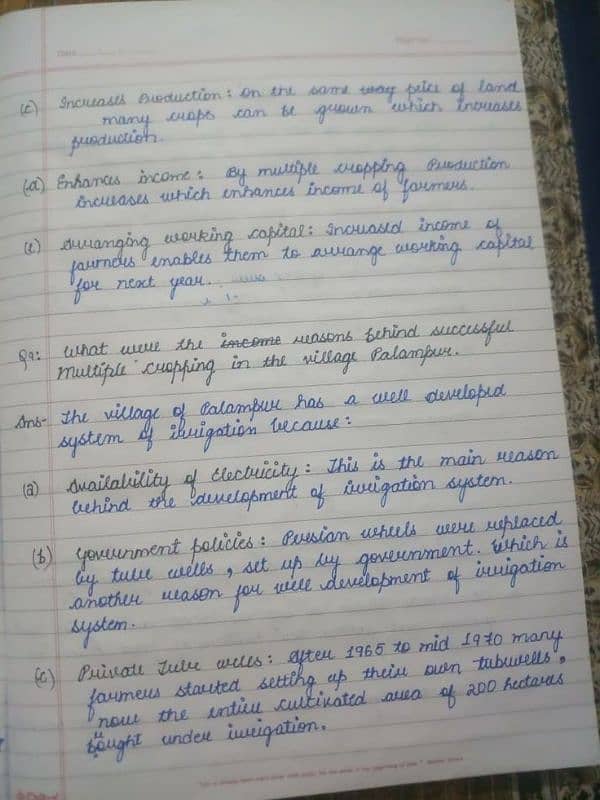 (c) Increases Production: On the same way peice of land
many crops can be grown which increases
production.
(d) Enhances income: By multiple cropping Production
increases which enhances income of farmers.
(e) Arranging working capital: Increased income of
farmers enables them to arrange working capital
for next year.
Q9: What were the income reasons behind successful
multiple cropping in the village Palampur.
Ans- The village of Palampur has a well developed
system of irrigation because:
(a) Availability of Electricity: This is the main reason
behind the development of irrigation system.
(b) Government policies: Persian wheels were replaced
by tube wells, set up by government. Which is
another reason for well development of irrigation
system.
(c) Private Tube wells: After 1965 to mid 1970 many
farmers started setting up their own tubwells,
now the entire cultivated area of 200 hectares
bought under irrigation.